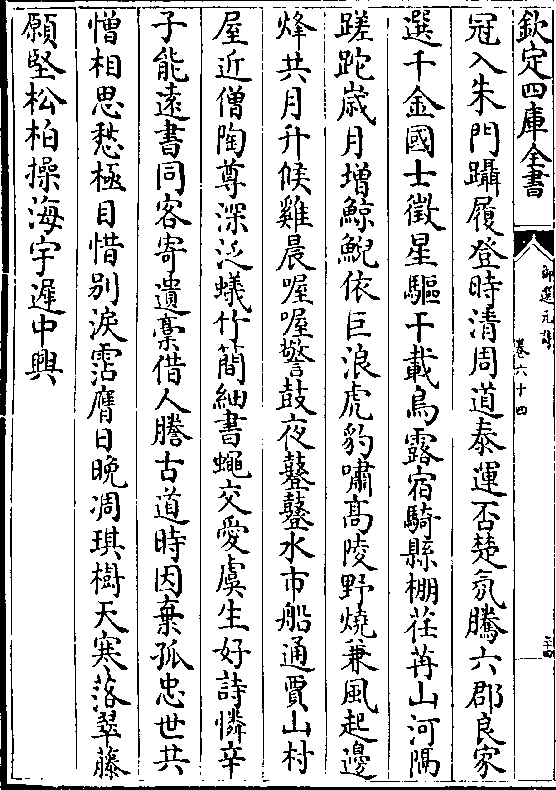 欽定四庫全書
御選元詩
卷六十四
冠入朱門躡履登時清周道泰運否楚氛騰六郡良家
選千金國士徵星驅千載鳥露宿騎縣棚荏苒山河隔
蹉跎歲月增鯨鯢依巨浪虎豹嘯高陵野燒兼風起邊
烽共月升候雞晨喔喔警鼓夜鼞鼞水市船通賈山村
屋近僧陶尊深泛蟻竹簡細書蠅交愛虞生好詩憐辛
子能遠書同客寄遺藁借人謄古道時因棄孤忠世共
憎相思愁極目惜別淚霑膺日晚凋琪樹天寒落翠藤
願堅松柏操海宇遲中興